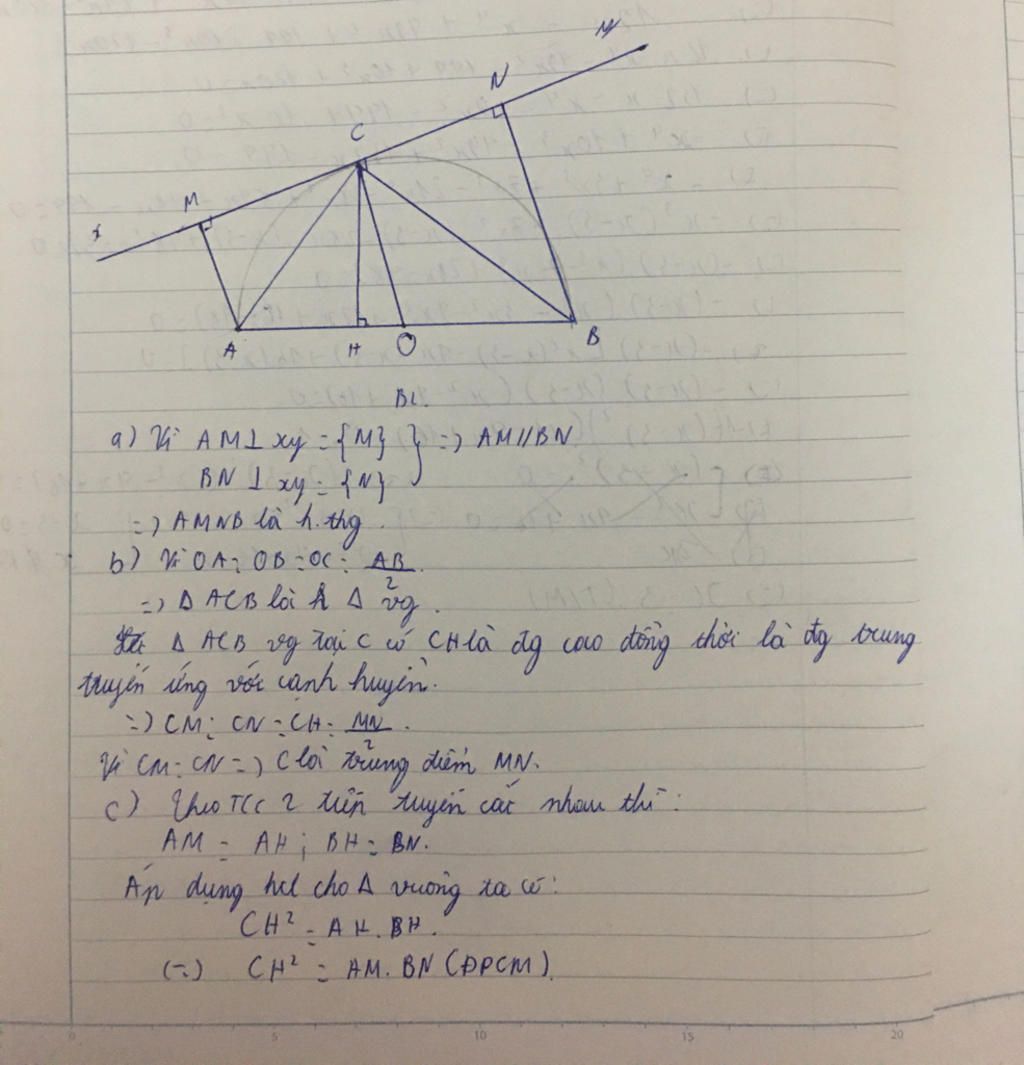 y
N
C
M
x
A H O B
BL.
a) Vì AM ⊥ xy = {M} } => AM // BN
BN ⊥ xy = {N}
=> AMNB là h.thg.
b) Vì OA = OB = OC = AB/2
=> Δ ACB là Δ vg.
Δ ACB vg tại C có CH là đg cao đồng thời là đg trung
truyến ứng với cạnh huyền.
=> CM = CN = CH = MN/2.
Vì CM = CN => C là trung điểm MN.
c) Theo T/c 2 tiếp tuyến cắt nhau thì:
AM = AH ; BH = BN.
Áp dụng htl cho Δ vuông ta có:
CH² = AH. BH.
(=) CH² = AM. BN (ĐPCM)
0 5 10 15 20